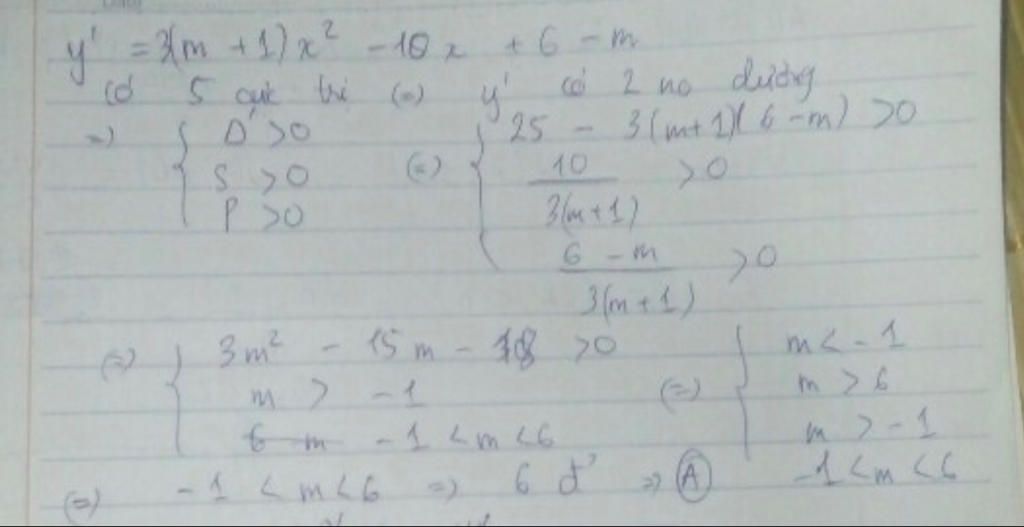 y' = 3(m + 1)x² - 10x + 6 - m
có 5 cực trị (=) y' có 2 no dương
=) { Δ' > 0 (=) { 25 - 3(m+1)(6-m) > 0
S > 0 10/3(m+1) > 0
P > 0 6-m/3(m+1) > 0
(=) { 3m² - 15m - 18 > 0 (=) { m < -1
m > -1 m > 6
6 - m -1 < m < 6 m > -1
-1 < m < 6
(=) -1 < m < 6 =) 6 đ' => A